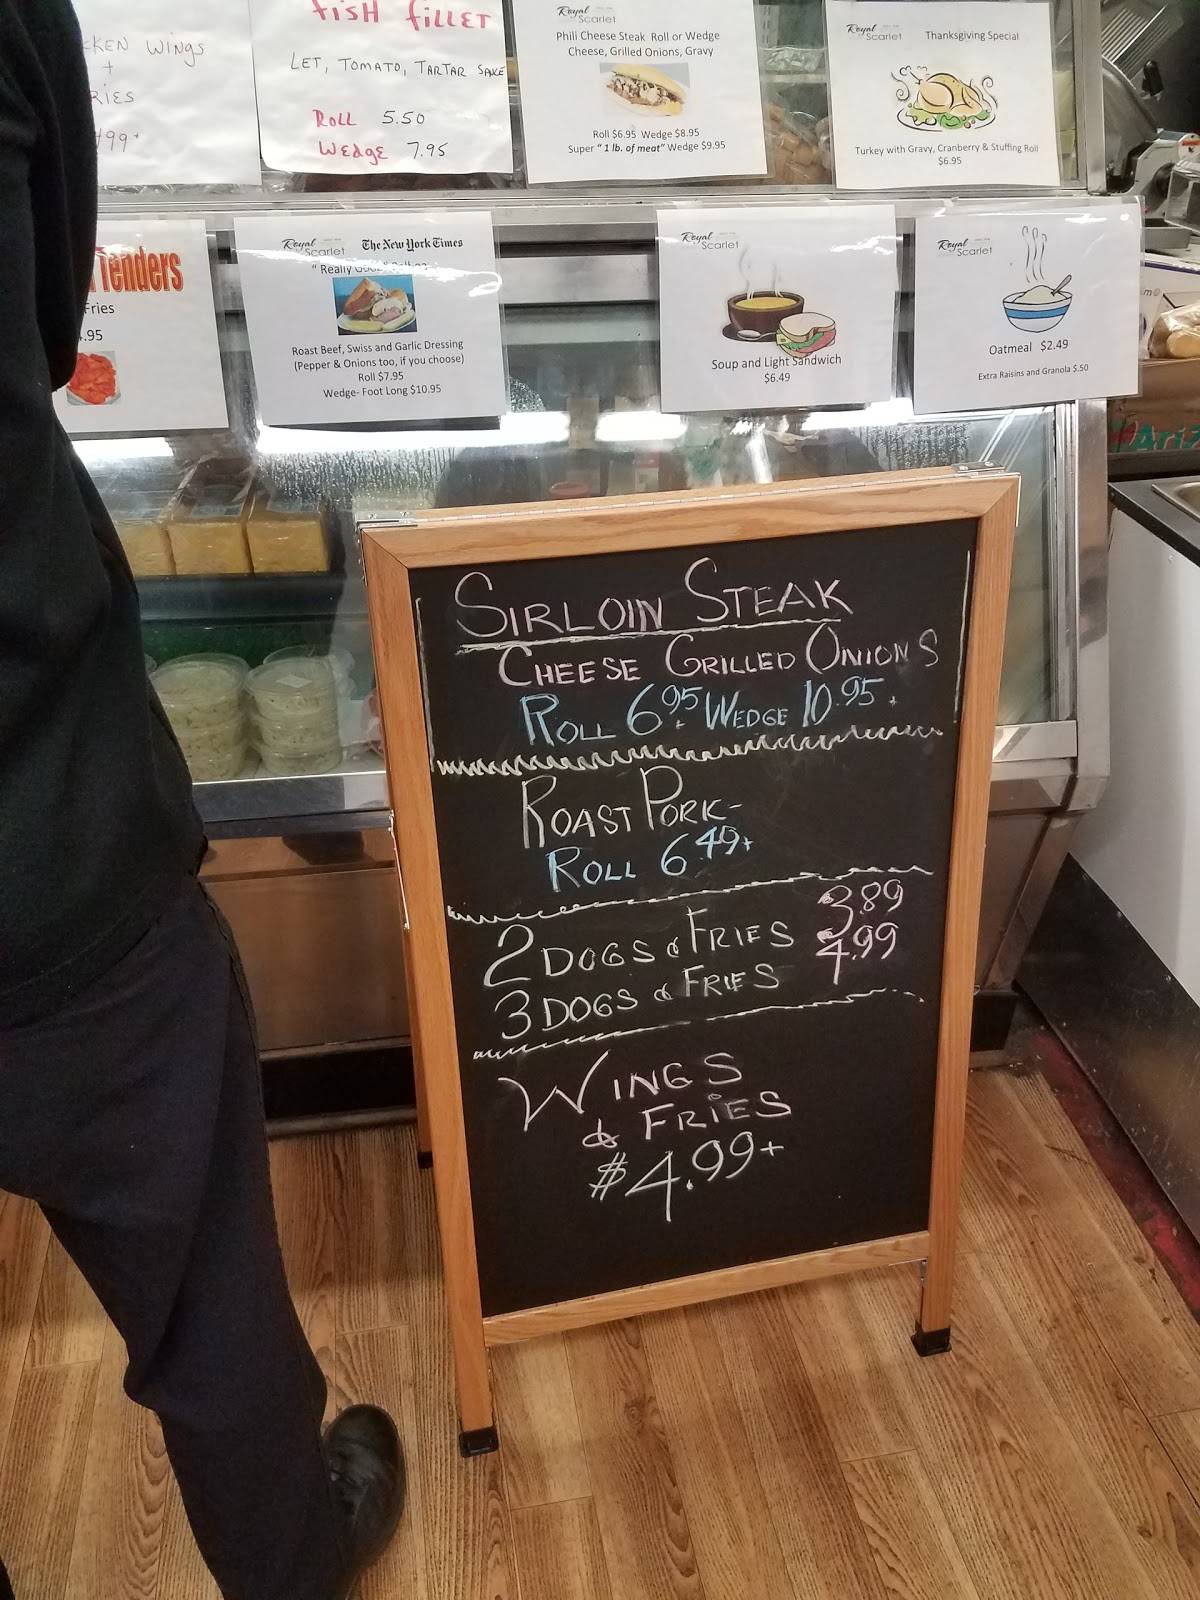 Wings
+
499+
fish fillet
Let, Tomato, Tartar Sauce
Roll 5.50
Wedge 7.95
Royal
Scarlet
Phili Cheese Steak Roll or Wedge
Cheese, Grilled Onions, Gravy
Roll $6.95 Wedge $8.95
Super "1 lb. of meat" Wedge $9.95
Royal
Scarlet
Thanksgiving Special
Turkey with Gravy, Cranberry & Stuffing Roll
$6.95
Tenders
Fries
.95
Royal
Scarlet
The New York Times
"Really
Roast Beef, Swiss and Garlic Dressing
(Pepper & Onions too, if you choose)
Roll $7.95
Wedge- Foot Long $10.95
Royal
Scarlet
Soup and Light Sandwich
$6.49
Royal
Scarlet
Oatmeal $2.49
Extra Raisins and Granola $.50
SIRLOIN STEAK
CHEESE GRILLED ONIONS
ROLL 6.95+ WEDGE 10.95+
ROAST PORK-
ROLL 6.49+
2 DOGS & FRIES 3.89
3 DOGS & FRIES 4.99
WINGS
& FRIES
$4.99+